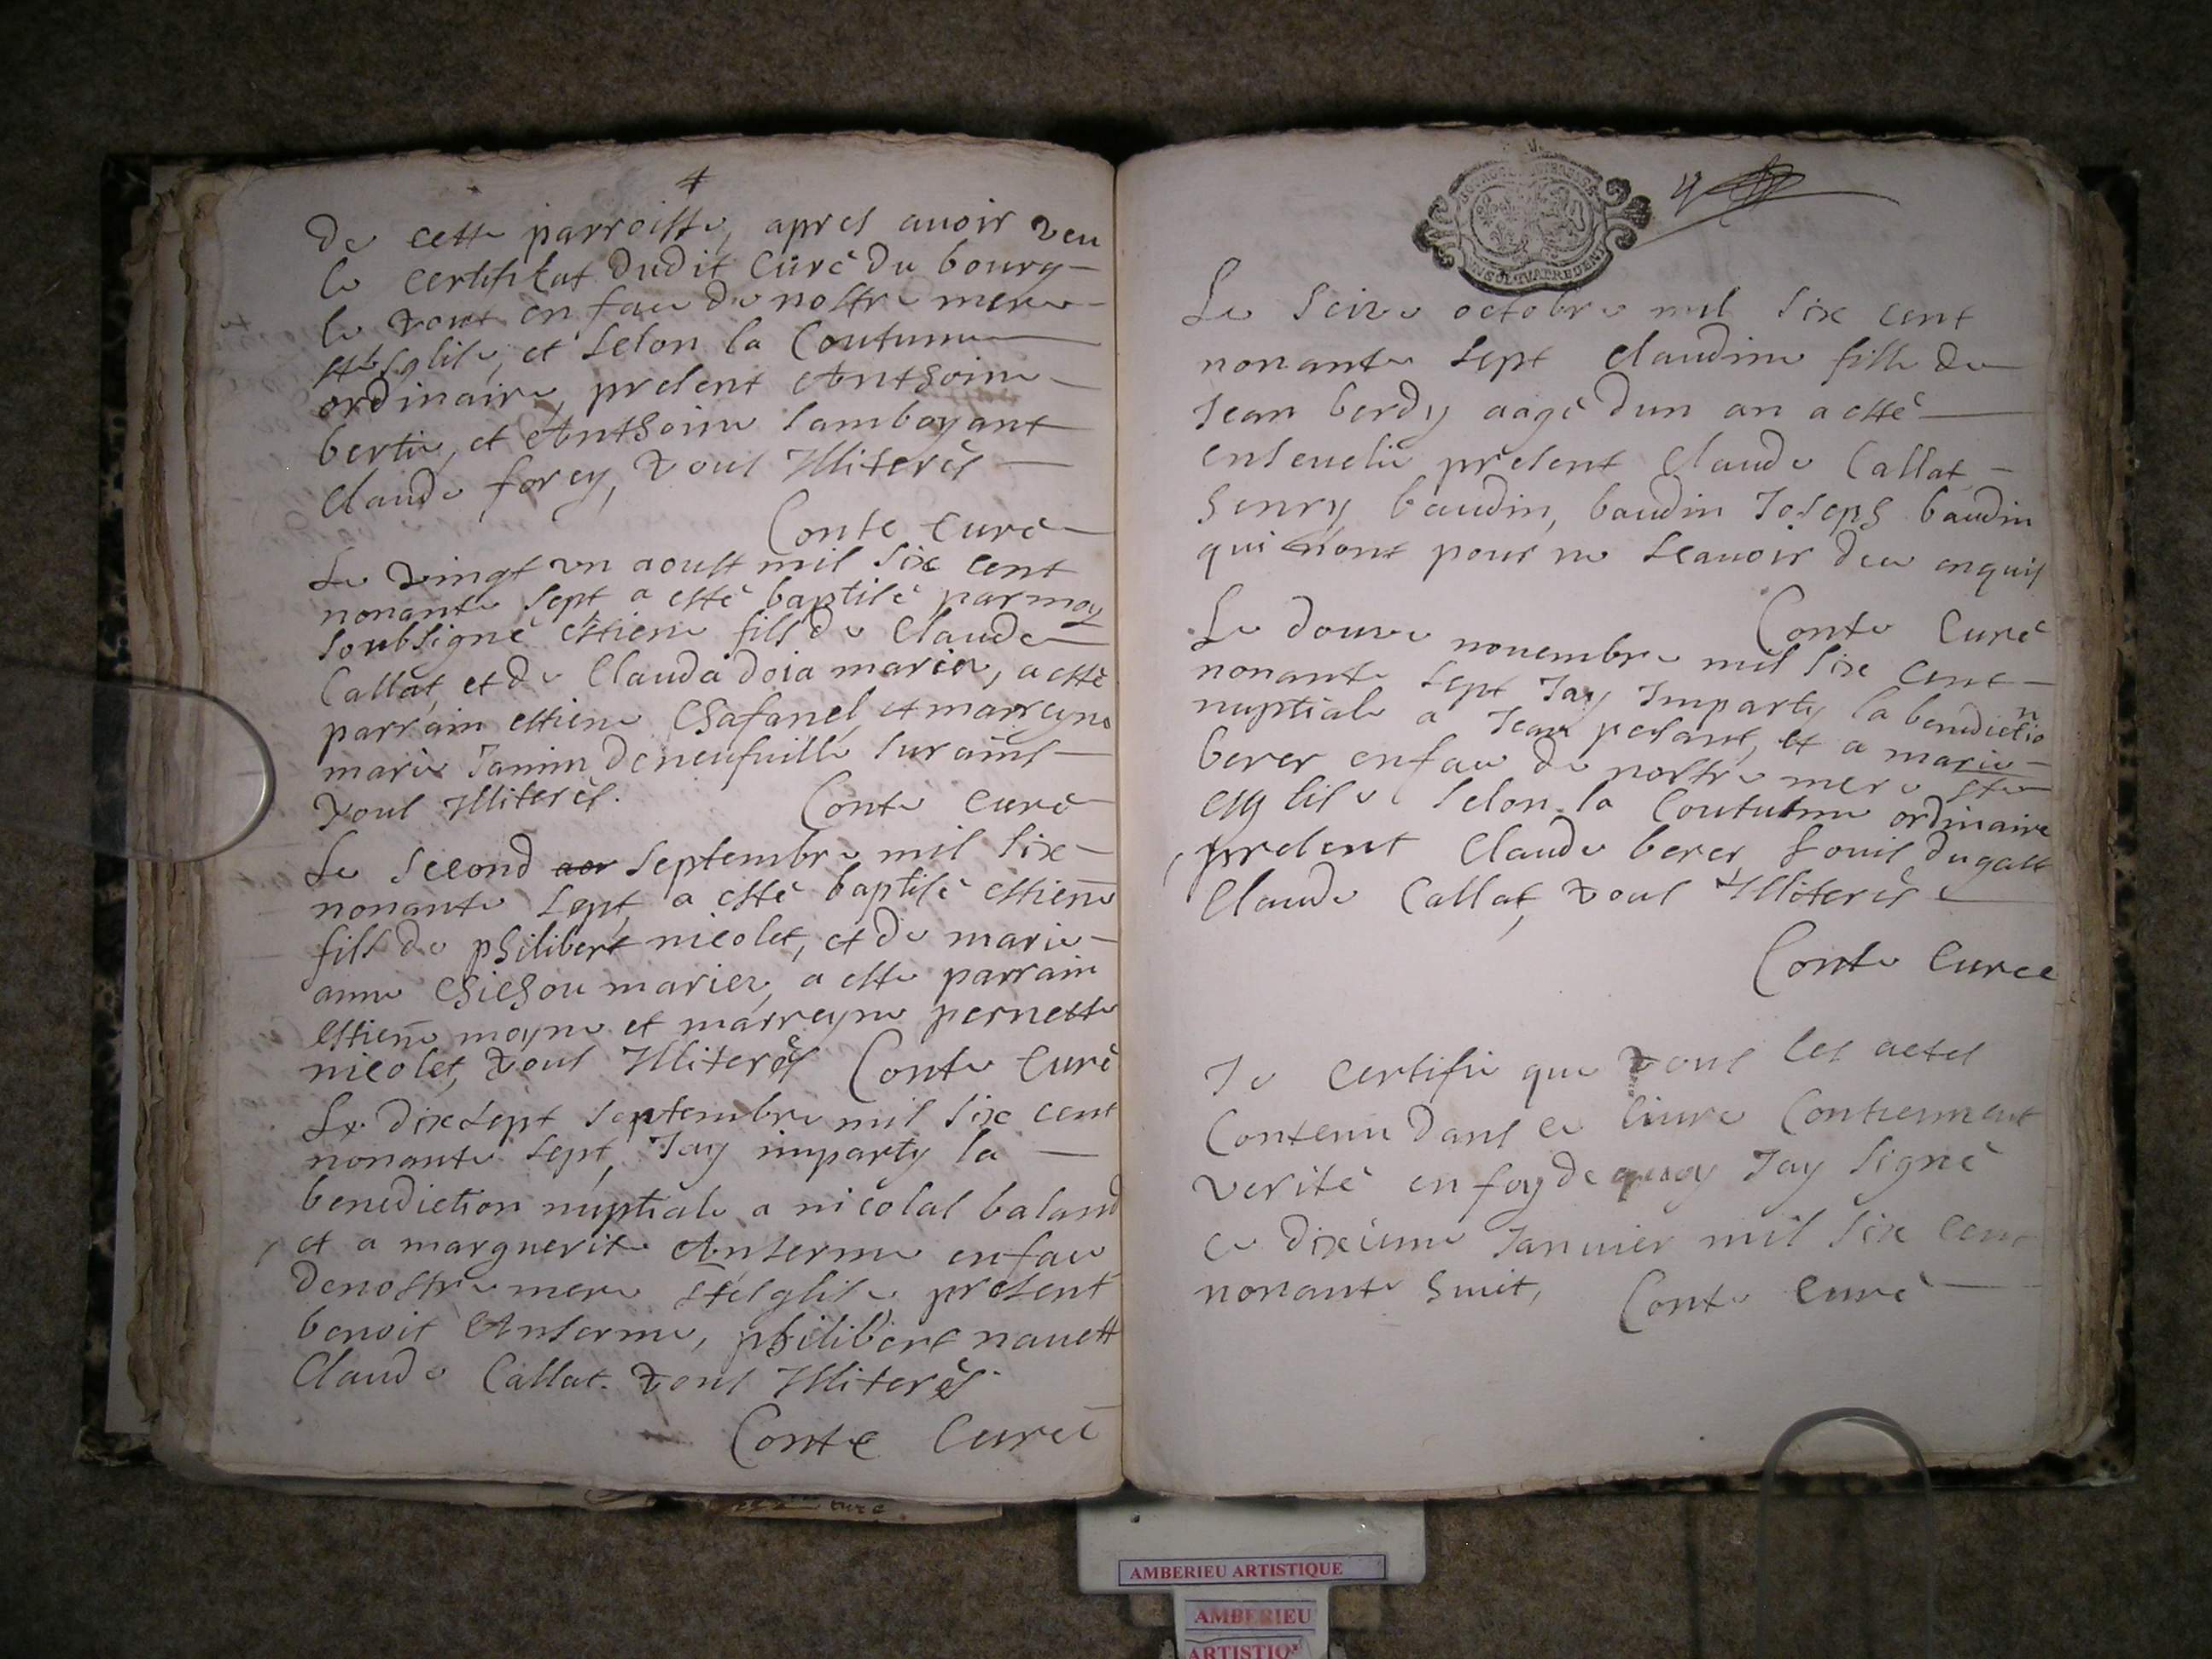 4
de cette parroisse, apres avoir veu
le certifikat dudit curé du bourg
le tout en face de nostre mere
ste esglise, et selon la coutume
ordinaire, present Anthoine
bertie, et Anthoine Jamboyant
claude forey, tous Illiterés
Conte curé
Le vingt un aoust mil six cent
nonante sept, a esté baptisé par moy
soubsigné estiene fils de claude
Callat, et de Clauda doia mariez, a esté
parrain estiene Chafanel, et marreyne
marie Janin de neufuille sur ains
tous Illiterés. Conte curé
Le second septembre mil six
nonante sept, a esté baptisé estiene
fils de philibert nicolet, et de marie
anne Chichou mariez, a este parrain
estiene moyne et marreyne pernette
nicolet, tous Illiterés Conte Curé
Le dix sept septembre mil six cent
nonante sept, Jay imparty la
benediction nuptiale a nicolas baland
et a marguerite Anserme en face
de nostre mere ste esglise present
benoit Anserme, philibert nauett
Claude Callat. tous Illiterés.
Conte Curé
Le seize octobre mil six cent
nonante sept claudine fille de
Jean berdy aagé dun an a esté
enseuelie present Claude Callat
henry baudin, baudin Joseph baudin
qui nont pour ne scauoir deu enquis
Conte Curé
Le douze nouembre mil six cent
nonante sept Jay Imparty la benedictio
n
nuptiale a Jean pesant, et a marie
berer en face de nostre mere ste
esglise selon la coutume ordinaire
present Claude berer, Louis dugatt
Claude Callat, tous Illiterés
Conte Curee
Je certifie que tous les actes
contenu dans ce liure contiennent
verité en foy de quoy Jay signé
ce dixieme Januier mil six cent
nonante huit, Conte Curé
AMBERIEU ARTISTIQUE
AMBERIEU
ARTISTIQ